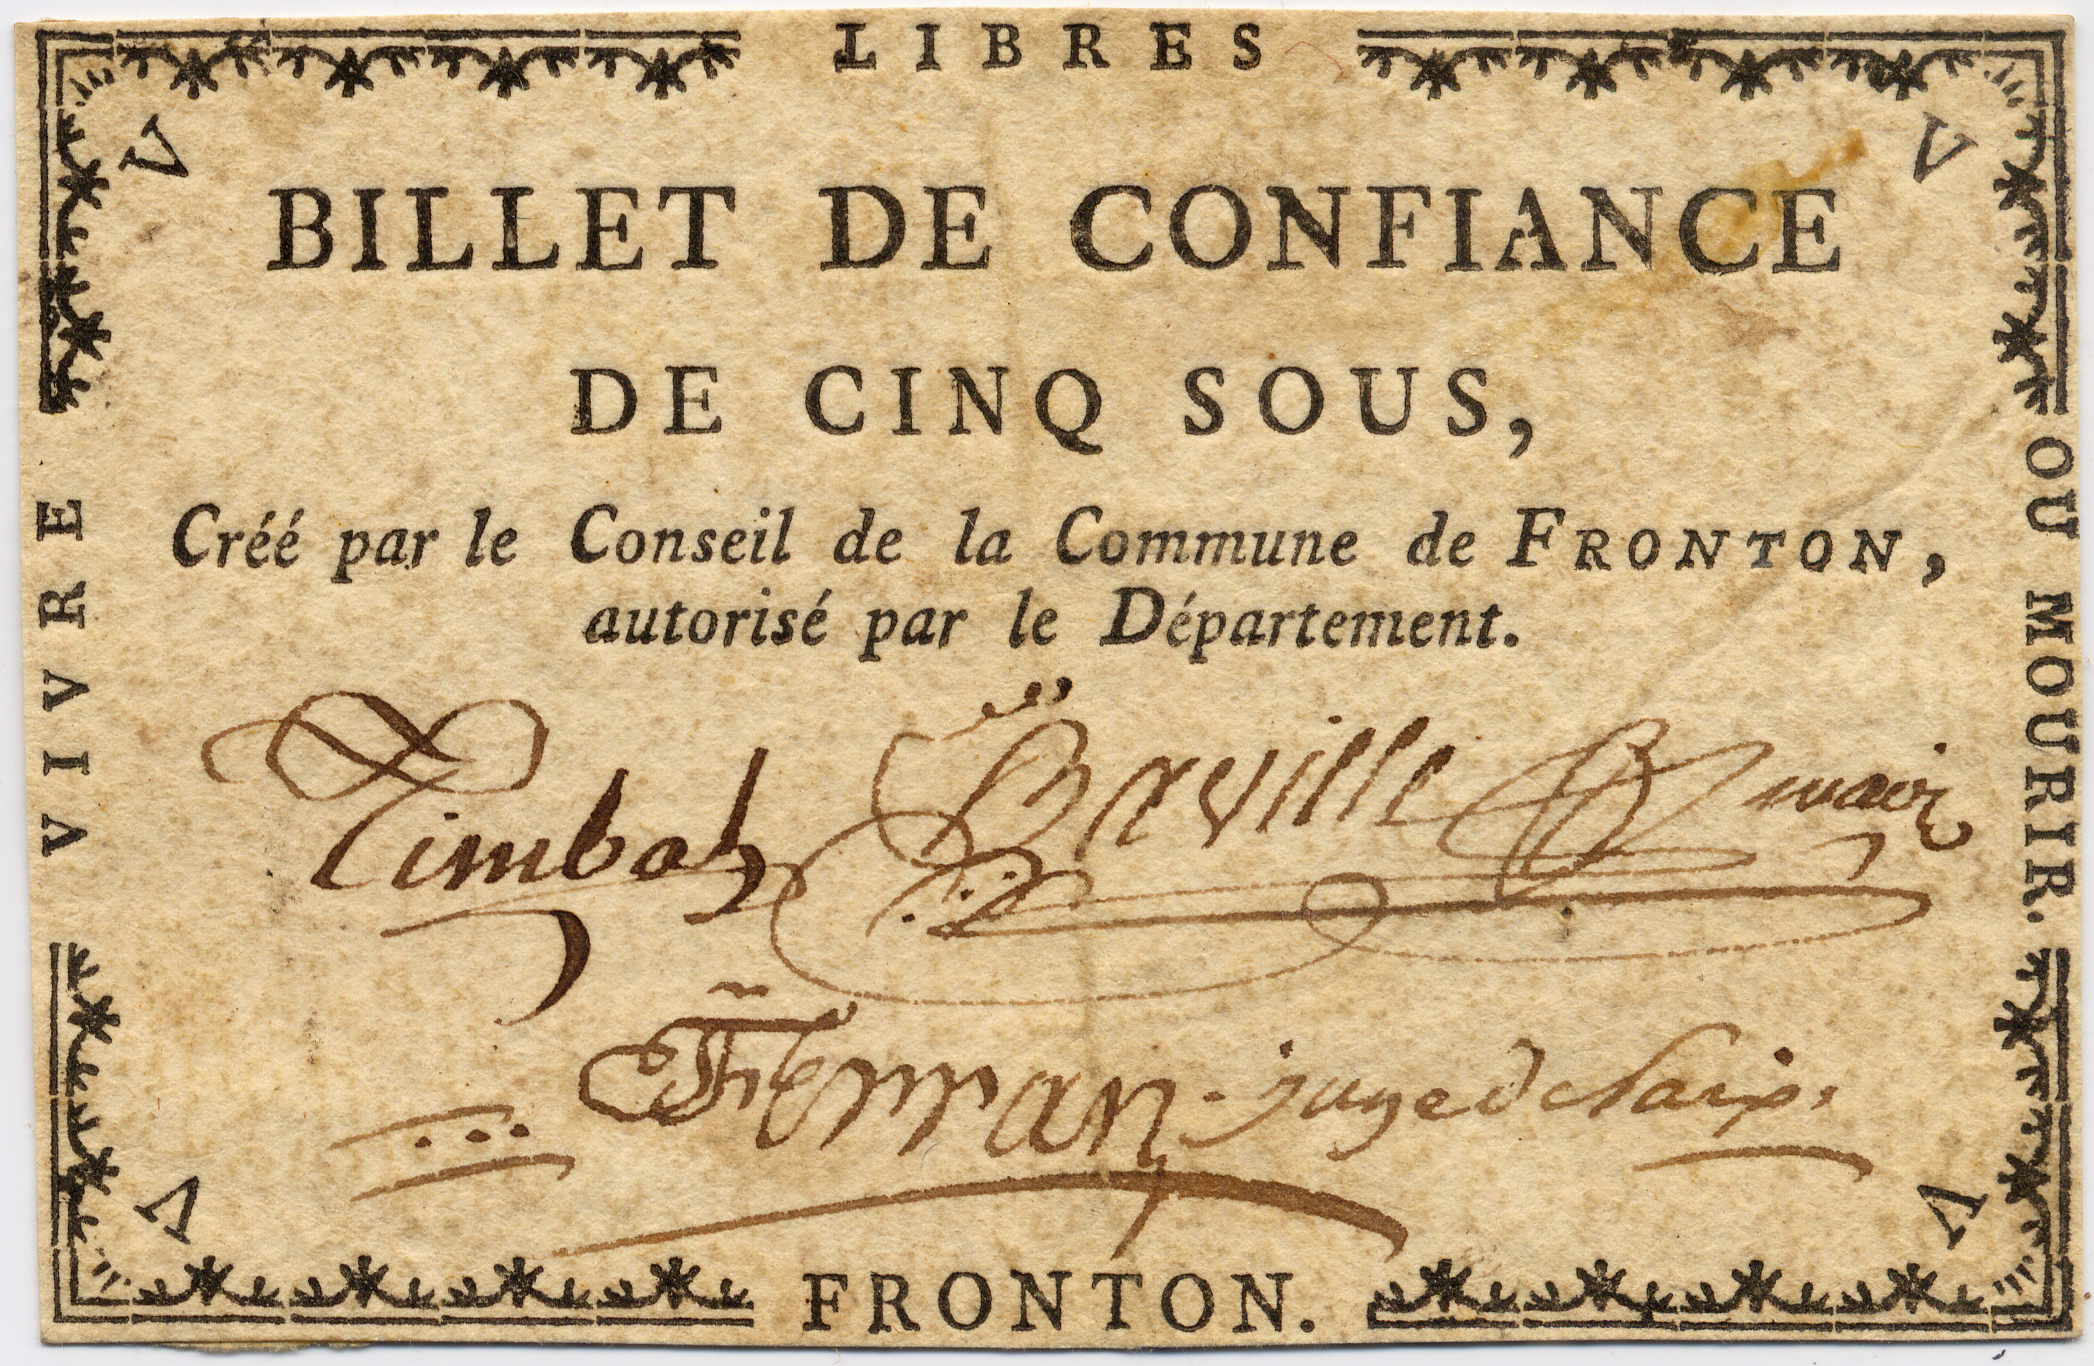 LIBRES
V V
BILLET DE CONFIANCE
DE CINQ SOUS,
Créé par le Conseil de la Commune de FRONTON,
autorisé par le Département.
VIVRE
OU MOURIR.
Timbal Baville mair
Ferran juge de paix
V V
FRONTON.